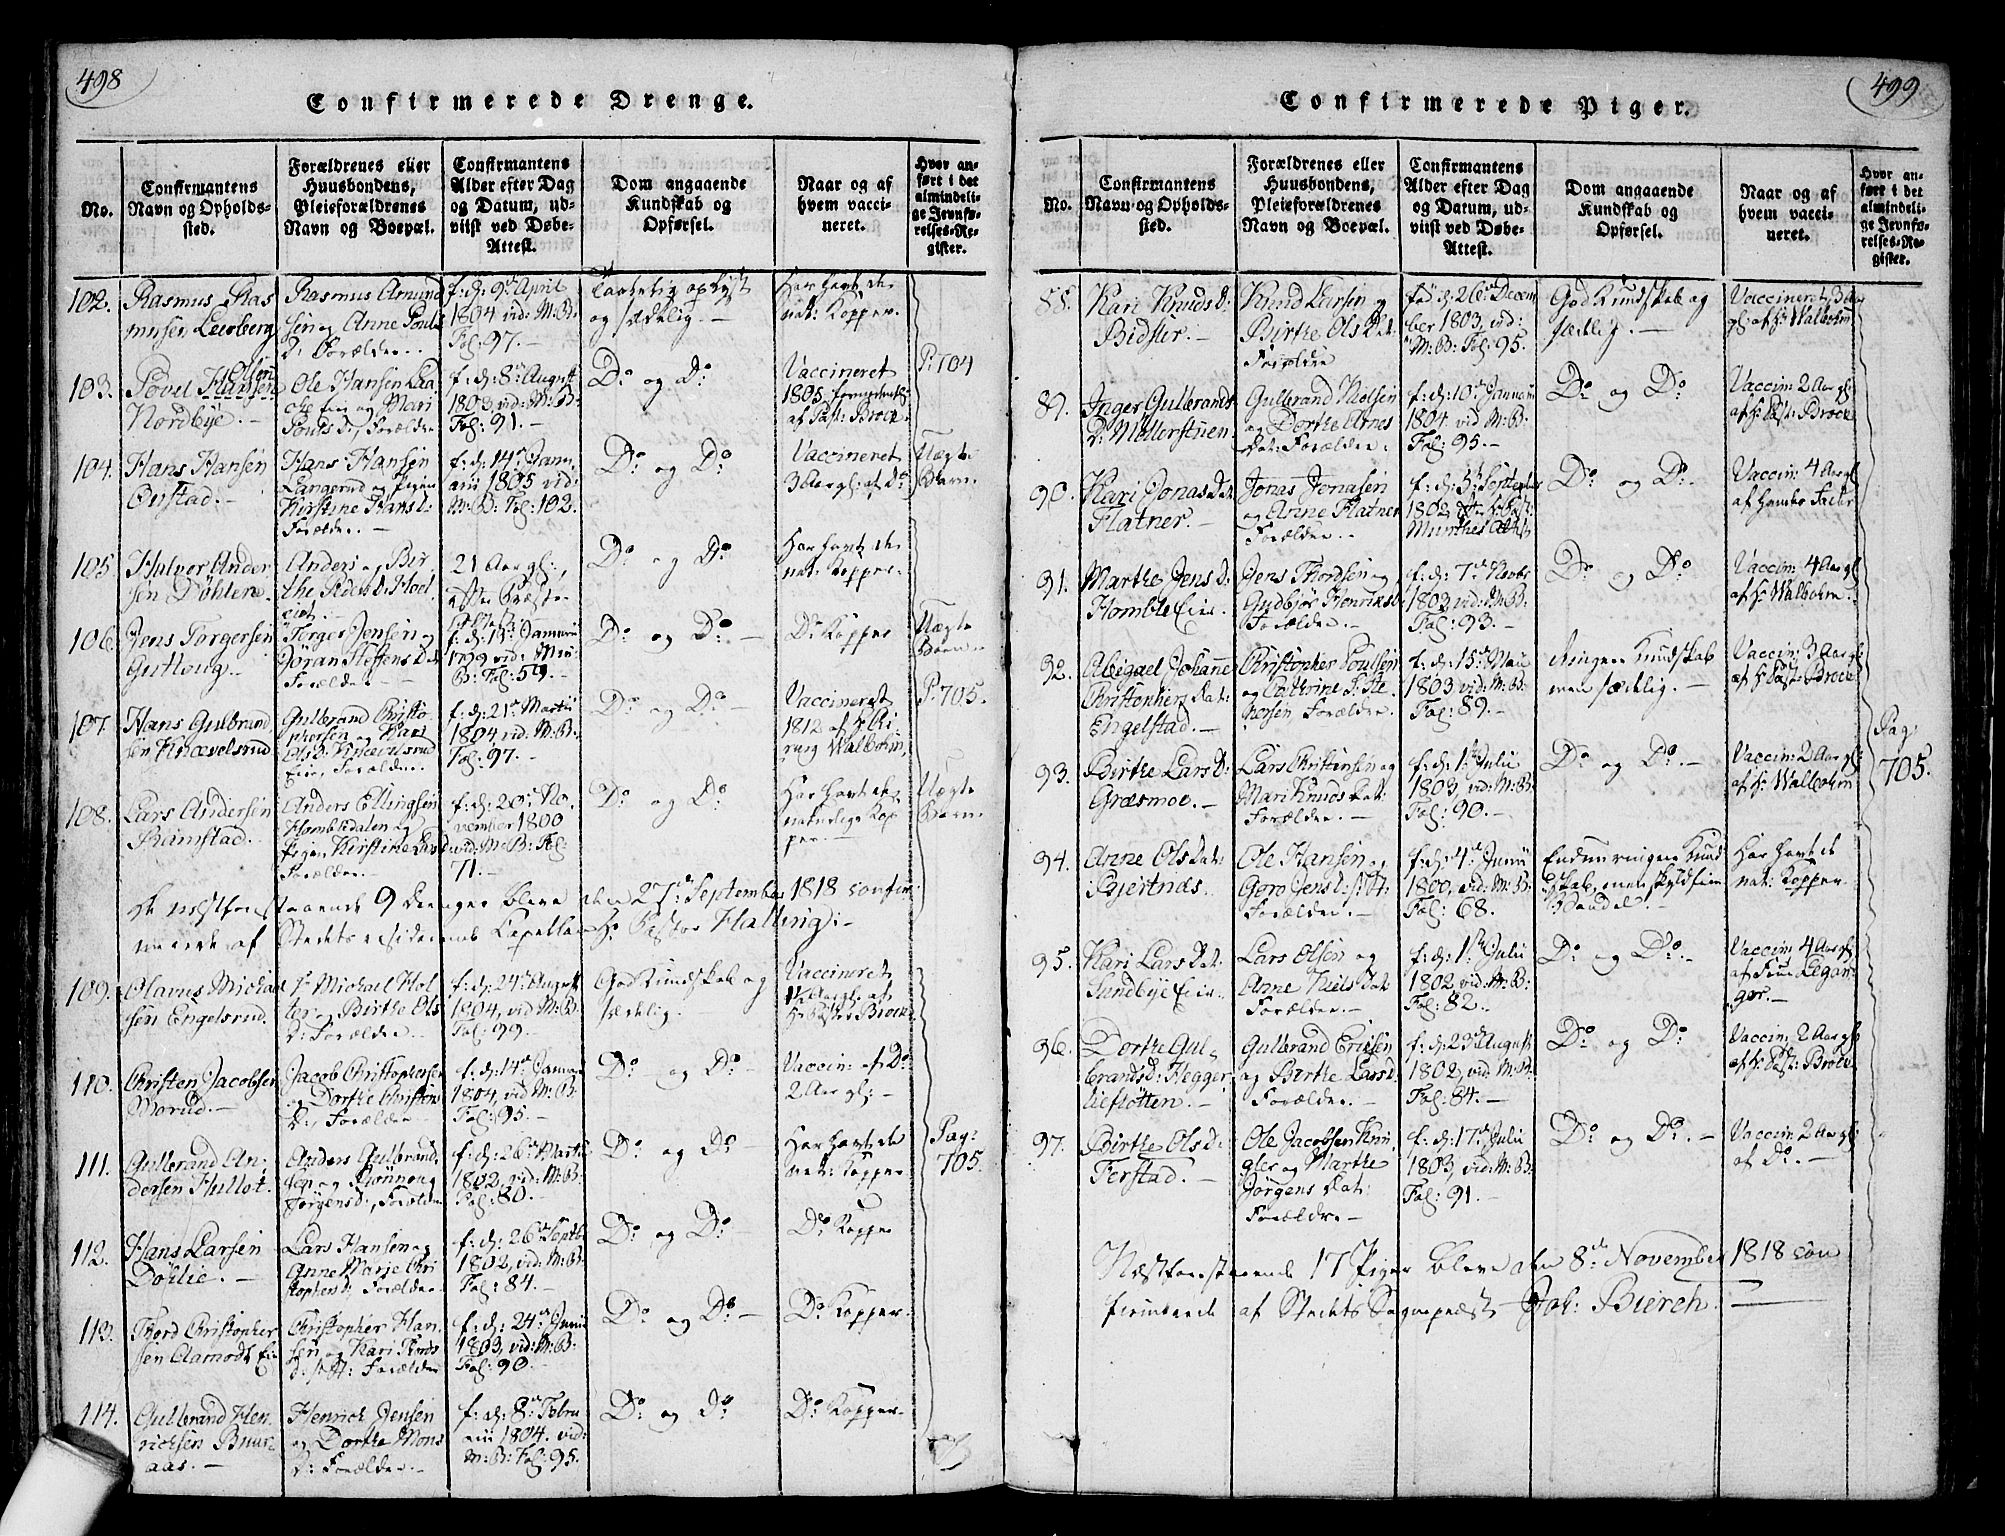 498
Confirmerede Drenge.
No.
Confirmantens
Navn og Opholds-
sted.
Forældrenes eller
Huusbondens,
Pleieforældrenes
Navn og Boepæl.
Confirmantens
Alder efter Dag
og Datum, ud-
viist ved Døbe-
Attest.
Dom angaaende
Kundskab og
Opførsel.
Naar og af
hvem vacci-
neret.
Hvor an-
ført i det
almindeli-
ge Jevnfø-
relses-Re-
gister.
102.
Rasmus Ras
musen Leerberg
Rasmus Amund
sen og Anne Pouls
D: Forældre.
f: d: 9de April
1804 vid: M: B:
Fol: 97.
og sædelig.
Har havt de
nat: Kopper.
103.
Povel Hansen
Olsen
Nordbye.
Ole Hansen
Eie og Mari
Pouls D:, Forældre
f: d: 8de August
1803 vid: M: B:
Fol: 91.
Do og Do
Vaccineret
1805
af Past: Brock.
P: 704
104.
Hans Hansen
Onstad.
Hans Hansen
Langerud og Pigen
Kirstine Hans D:
Forældre.
f: d: 14de Janu
arii 1805 vid:
M: B: Fol: 102.
Do og Do
Vaccineret
3 Aar gl: af Do
Uægte
Barn.
105.
Halvor Ander
sen Döhlen.
Anders og Bir
the Peders D:
21 Aar gl:,
efter Præste
Do og Do
Har havt de
nat: Kopper.
106.
Jens Torgersen
Gutloug.
Torger Jensen og
Jöran Steffens D:
Forældre.
f: d: 15de Januarii
1799 vid: Mi:
B: Fol: 59.
Do og Do
Do Kopper
Uægte
Barn.
107.
Hans Gulbrand
sen Knævelsrud
Gulbrand Christo
phersen og Kari
Ols D: Knævelsrud
Eie, Forældre.
f: d: 21de Martii
1804 vid: M: B:
Fol: 97.
Do og Do
Vaccineret
1812 af H: Chi
rurg Walbohm,
P: 705.
108.
Lars Andersen
Ramstad.
Anders Ellingsen
Hambledalen og
Pigen Kirstine Lars D:
Forældre.
f: d: 20de No
vember 1800
vid: M: B: Fol:
71.
Do og Do
Har havt de
naturlige Kop
per.
Uægte
Barn
De næstforestaaende 9 Drenge bleve den 27de September 1818 confir
merede af Stedets residerende Capellan Hr Pastor Halling:
109.
Olavus Michael
sen Engelsrud.
Michael Hol
ter og Birthe Ols
D: Forældre.
f: d: 24de August
1804, vid: M: B:
Fol: 99.
God Kundskab og
sædelig.
Vaccineret
1½ Aar gl: af
Hr Pastor Brock
110.
Christen Jacobsen
Morud.
Jacob Christophersen
og Dorthe Christens
D:, Forældre
f: d: 14de Januar
1804, vid: M: B:
Fol: 95.
Do og Do
Vaccin: af Do
2 Aar gl:
111.
Gulbrand An-
dersen Hullot.
Anders Gulbrand
sen og Rönnoug
Jörgens D:, Forældre
f: d: 26de Martii
1802, vid: M: B:
Fol: 80.
Do og Do
Har havt de
nat: Kopper
Pag:
705.
112.
Hans Larsen
Döhlie.
Lars Hansen og
Anne Marie Chri
stophers D: Forældre
f: d: 26de Septb
1802, vid: M: B:
Fol: 84.
Do og Do
Do Kopper
113.
Thord Christopher
sen Aamodt Eie
Christopher Han
sen og Kari Thords
D: Forældre
f: d: 24de Junii
1803, vid: M: B:
Fol: 90.
Do og Do
Do Kopper.
114.
Gulbrand Hen
richsen Bruer
aas.
Henrich Jensen
og Dorthe Mons
D: Forældre.
f: d: 8de Febru
arii 1804. vid:
M: B: Fol: 95.
Do og Do
Do Kopper.
499
Confirmerede Piger.
No.
Confirmantens
Navn og Opholds-
sted.
Forældrenes eller
Huusbondens,
Pleieforældrenes
Navn og Boepæl.
Confirmantens
Alder efter Dag
og Datum, ud-
viist ved Døbe-
Attest.
Dom angaaende
Kundskab og
Opførsel.
Naar og af
hvem vacci-
neret.
Hvor an-
ført i det
almindeli-
ge Jevnfø-
relses-Re-
gister.
88.
Kari Knuds D:
Bidster.
Knud Larsen og
Birthe Ols Dat:
Forældre
fød d: 26de Decem
ber 1803, vid:
M: B: Fol: 95.
God Kundskab og
sædelig.
Vaccineret, 3 Aar
gl: af Hr Walbohm
89.
Inger Gulbrands
D: Möllerstuen.
Gulbrand Nielsen
og Dorthe Arnes
Dat: Forældre.
f: d: 10de Januarii
1804 vid M: B:
Fol: 95.
Do og Do
Vaccin: 2 Aar gl:
af Hr Past: Brock
90.
Kari Jonas Dat:
Flatner.
Jonas Jonasen
og Anne Flatner
Forældre.
f: d: 5te September
1802 efter Hr Past:
Munthes Attest
Do og Do
Vaccin: 4 Aar gl:
91.
Marthe Jens D:
Homble Eie.
Jens Thordsen og
Gudbjör Henriks D:
Forældre.
f: d: 7de Novbr
1803 vid: M: B:
Fol: 93.
Do og Do
Vaccin: 4 Aar gl
af Hr Walbohm.
92.
Abigael Johanne
Christophers Dat:
Engelstad.
Christopher Poulsen
og Cathrine
Forældre.
f: d: 15de Maii
1803 vid: M: B:
Fol: 89.
Ringere Kundskab
men sædelig.
Vaccin: 3 Aar gl
af Hr Past: Brock
93.
Birthe Lars D:
Græsmoe.
Lars Christensen og
Mari Knuds Dat:
Forældre.
f: d: 1ste Julii
1803, vid: M: B:
Fol: 90.
Do og Do.
Vaccin: 2 Aar gl:
af Hr Walbohm
Pag:
705.
94.
Anne Ols Dat:
Gjertnæs.
Ole Hansen og
Goro Jens D:
Forældre.
f: d: 4de Junii
1800, vid: M: B:
Fol: 68.
Endnu ringere Kund
skab, men skikkelig
Vandel.
Har havt de
nat: Kopper.
95.
Kari Lars Dat:
Sundbye Eie.
Lars Olsen og
Anne Niels Dat:
Forældre.
f: d: 1ste Julii
1802 vid: M: B:
Fol: 82.
Do og Do.
Vaccin: 4 Aar gl:
96.
Dorthe Gul-
brands D: Hegger
liefløtten.
Gulbrand Ericsen
og Birthe Lars D:
Forældre.
f: d: 29de August
1802, vid: M: B:
Fol: 84.
Do og Do
Vaccin: 2 Aar gl
af Hr Past: Brock
97.
Birthe Ols D:
Ferstad.
Ole Jacobsen Knu
og Marthe
Jörgens Dat:
Forældre.
f: d: 17de Julii
1803, vid: M: B:
Fol: 91.
Do og Do.
Vaccin: 2 Aar gl:
af Do.
Næstforestaaende 17 Piger bleve den 8de November 1818 con
firmerede af Stedets Sognepræst Joh: Bierch.